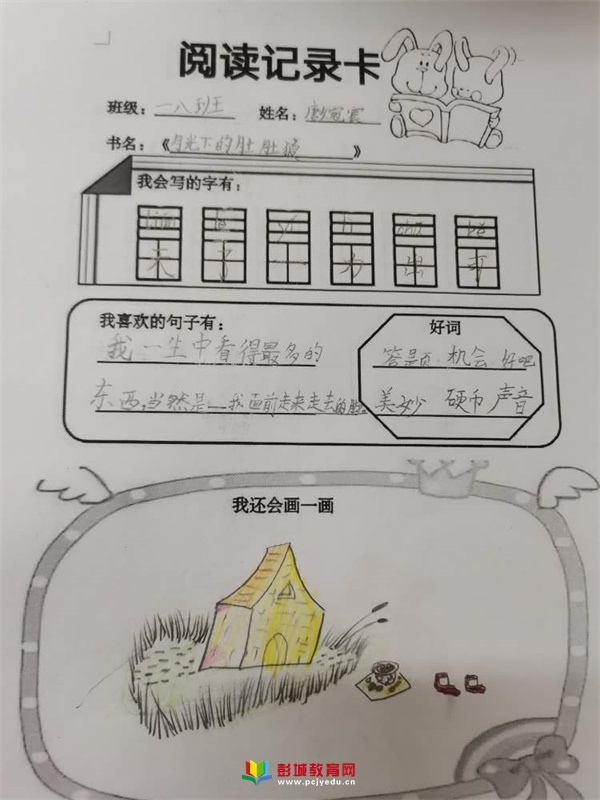 阅读记录卡
班级：一八班 姓名：
书名：《月光下的肚肚狼》
我会写的字有：
天 了 十 为 出 可
我喜欢的句子有： 好词
我一生中看得最多的
东西,当然是 我面前走来走去的
答题 机会 好吧
美妙 硬币 声音
我还会画一画
彭城教育网
www.pcjyedu.cn